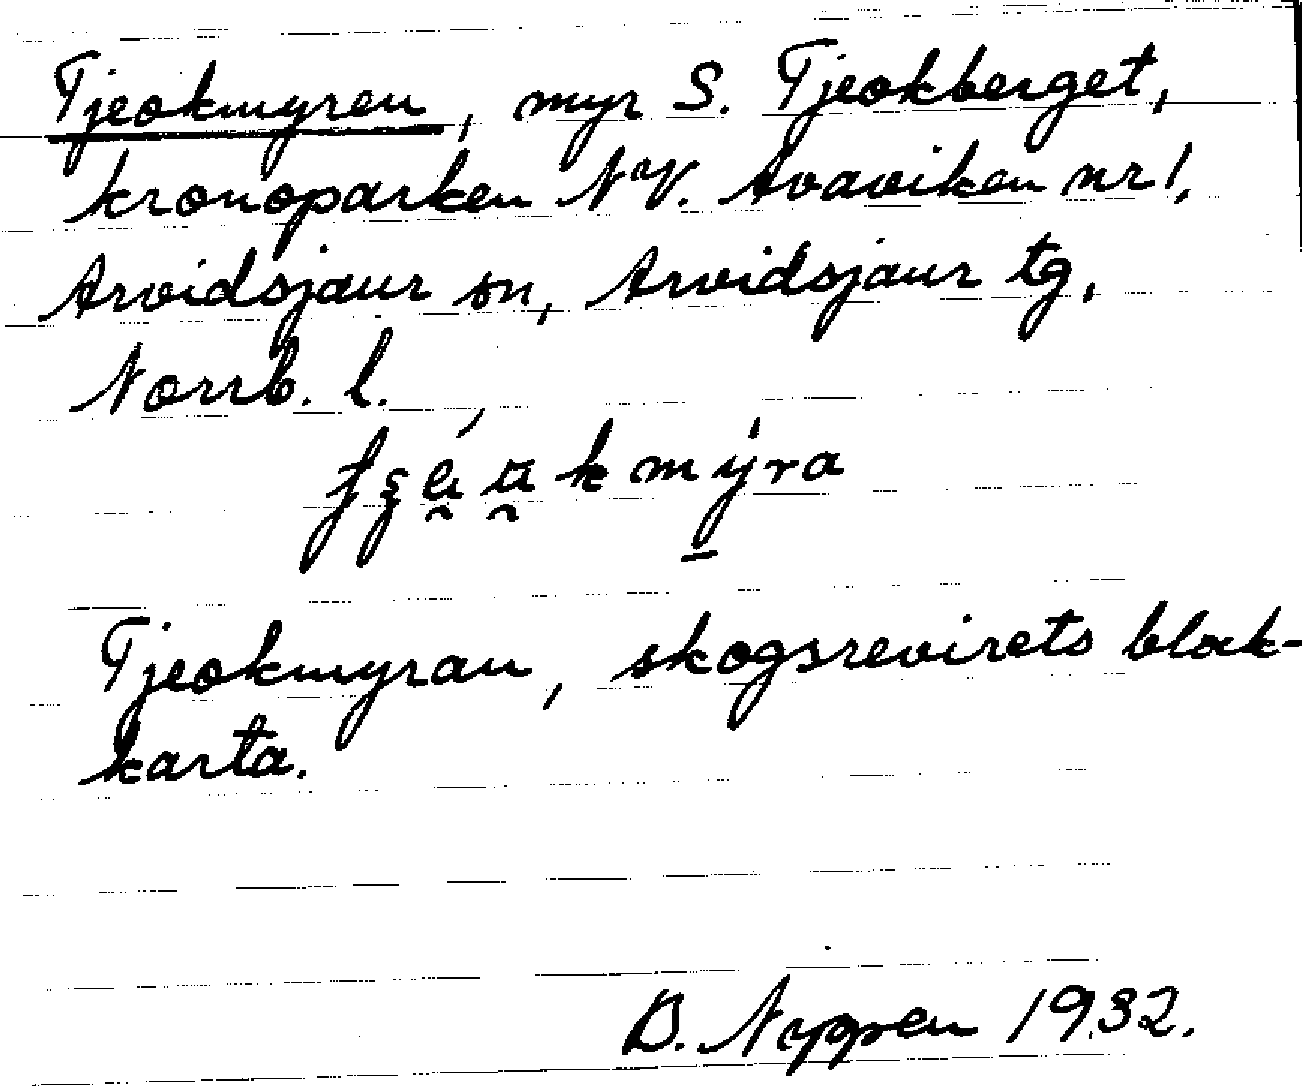 Tjeokmyren, myr S. Tjeokberget,
kronoparken NV. Avaviken nr 1.
Arvidsjaur sn, Arvidsjaur tg,
Norrb. l.
Tjeokmyran, skogsrevirets block-
karta.
D. Nygren 1932.